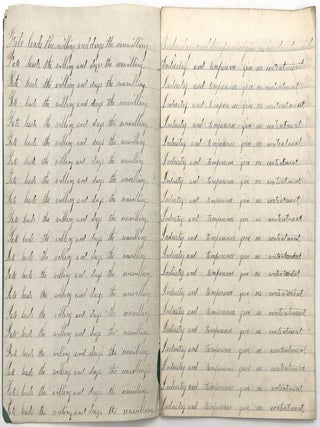 Fate leads the willing and drags the unwilling.
Fate leads the willing and drags the unwilling.
Fate leads the willing and drags the unwilling.
Fate leads the willing and drags the unwilling.
Fate leads the willing and drags the unwilling.
Fate leads the willing and drags the unwilling.
Fate leads the willing and drags the unwilling.
Fate leads the willing and drags the unwilling.
Fate leads the willing and drags the unwilling.
Fate leads the willing and drags the unwilling.
Fate leads the willing and drags the unwilling.
Fate leads the willing and drags the unwilling.
Fate leads the willing and drags the unwilling.
Fate leads the willing and drags the unwilling.
Fate leads the willing and drags the unwilling.
Fate leads the willing and drags the unwilling.
Fate leads the willing and drags the unwilling.
Fate leads the willing and drags the unwilling.
Fate leads the willing and drags the unwilling.
Fate leads the willing and drags the unwilling.
Industry and temperance give us contentment
Industry and temperance give us contentment
Industry and temperance give us contentment
Industry and temperance give us contentment
Industry and temperance give us contentment
Industry and temperance give us contentment
Industry and temperance give us contentment
Industry and temperance give us contentment
Industry and temperance give us contentment
Industry and temperance give us contentment
Industry and temperance give us contentment
Industry and temperance give us contentment
Industry and temperance give us contentment
Industry and temperance give us contentment
Industry and temperance give us contentment
Industry and temperance give us contentment
Industry and temperance give us contentment
Industry and temperance give us contentment
Industry and temperance give us contentment
Industry and temperance give us contentment